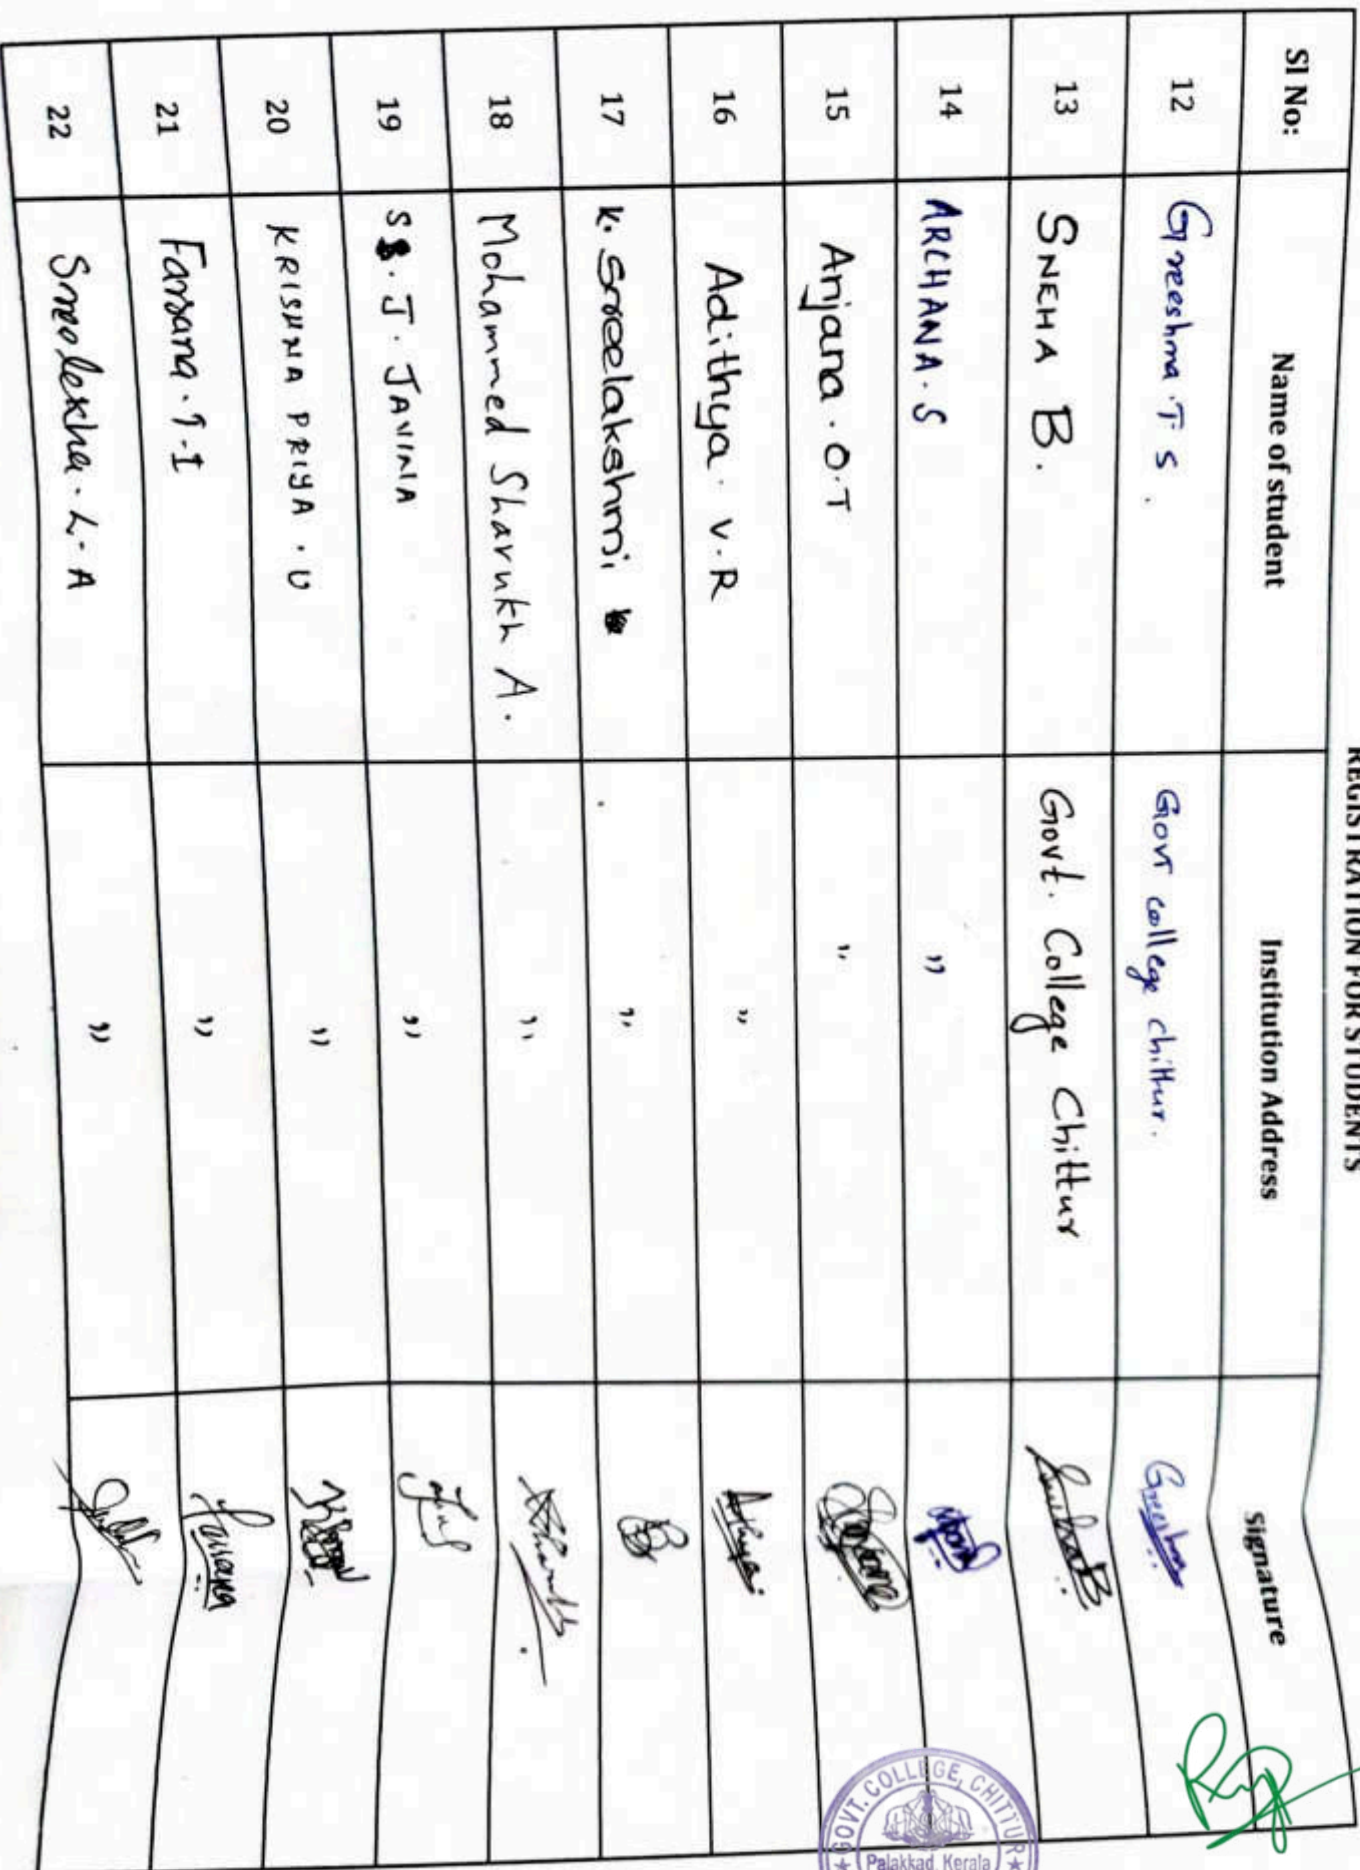 REGISTRATION FOR STUDENTS
Sl No: Name of student Institution Address Signature
12 Greeshma. T S. Govt college chittur. Greeshma
13 SNEHA B. Govt. College Chittur Sneha B
14 ARCHANA. S ,,
15 Anjana. O.T ,,
16 Adithya. V.R ,,
17 K. Sreelakshmi ,,
18 Mohammed Sharukh A. ,,
19 S. J. JAVINA ,,
20 KRISHNA PRIYA. U ,,
21 Farsana. I. I ,, Farsana
22 Sreelekha. L. A ,,
GOVT. COLLEGE, CHITTUR
Palakkad, Kerala